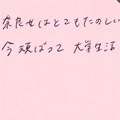 奈良女はとてもたのしい
今頑ばって 大学生活